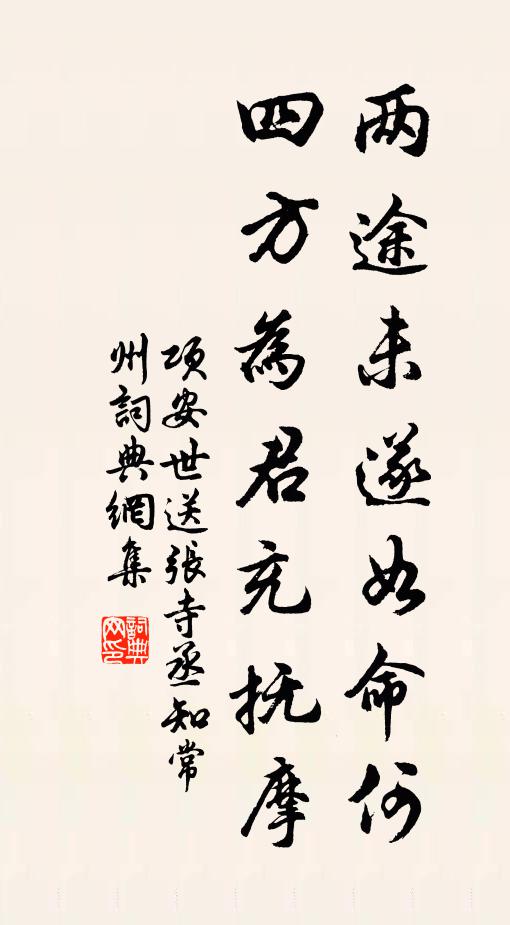 两途未遂如命何
四方為君充抚摩
項安世送張寺丞知常
州詞典網集
詞典网印